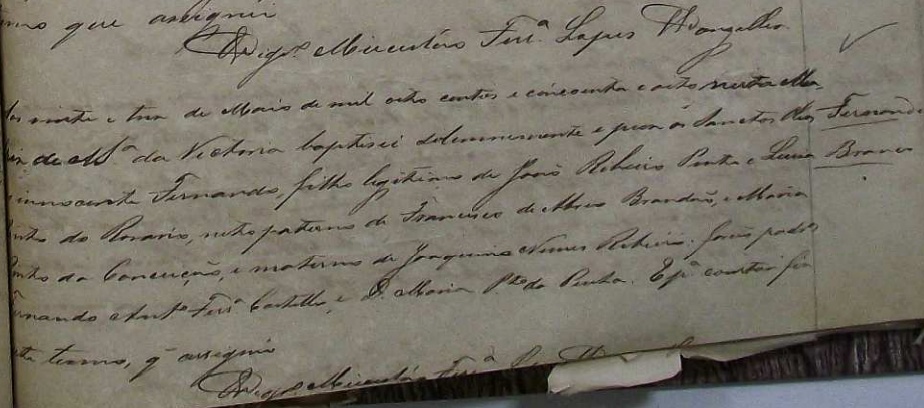 que assignei
Vigr.º Mirentéro Ferr.ª Lopes Wangeller
vinte e tres de Maio de mil oito centos e cincoenta e oito nesta Ma
de N. S.ª da Victoria baptisei solemnemente e puz os Sanctos Oleos
Fernando
Branco
innocente Fernando, filho legitimo de João Ribeiro Penha e Luisa
do Rosario, neto paterno de Francisco de Abreu Brandão, e Maria
da Conceição, e materno de Joaquim Nunes Ribeiro: forão padr.ºs
Ant.º Ferr.ª Castello, e D. Maria da Penha. E p.ª constar fiz
termo, q' assignei
Vigr.º Ferr.ª